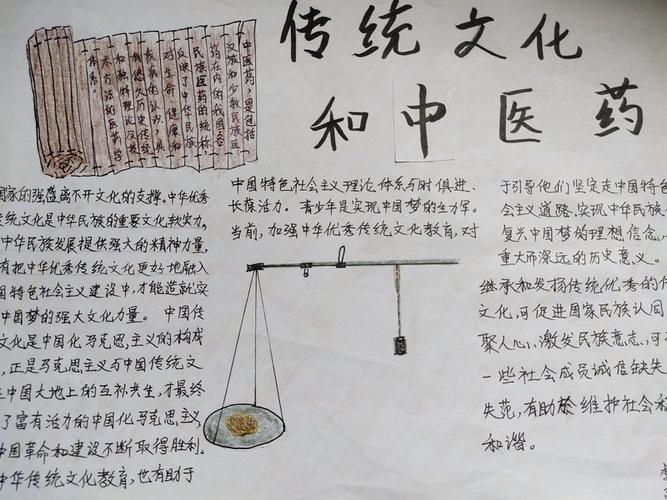 传统文化
和中医药
中医药，是包括
汉族和少数民族医
药在内的我国各
民族医药的统称
反映了中华民族
对生命、健康和
疾病的认识，具
有悠久历史传统
和独特理论及技
术方法的医药学
体系。
国家的强盛离不开文化的支撑。中华优秀
传统文化是中华民族的重要文化软实力，
中华民族发展提供强大的精神力量，
有把中华优秀传统文化更好地融入
国特色社会主义建设中，才能造就实
中国梦的强大文化力量。中国传
文化是中国化马克思主义的构成
，正是马克思主义与中国传统文
中国大地上的互补共生，才最终
了富有活力的中国化马克思主义
中国革命和建设不断取得胜利。
中华传统文化教育，也有助于
中国特色社会主义理论体系与时俱进、
长葆活力。青少年是实现中国梦的生力军。
当前，加强中华优秀传统文化教育，对
于引导他们坚定走中国特色
会主义道路、实现中华民族
复兴中国梦的理想信念，
重大而深远的历史意义。
继承和发扬传统优秀的传
文化，可促进国家民族认同
聚人心、激发民族意志，可
一些社会成员诚信缺失
失范，有助於维护社会和
和谐。